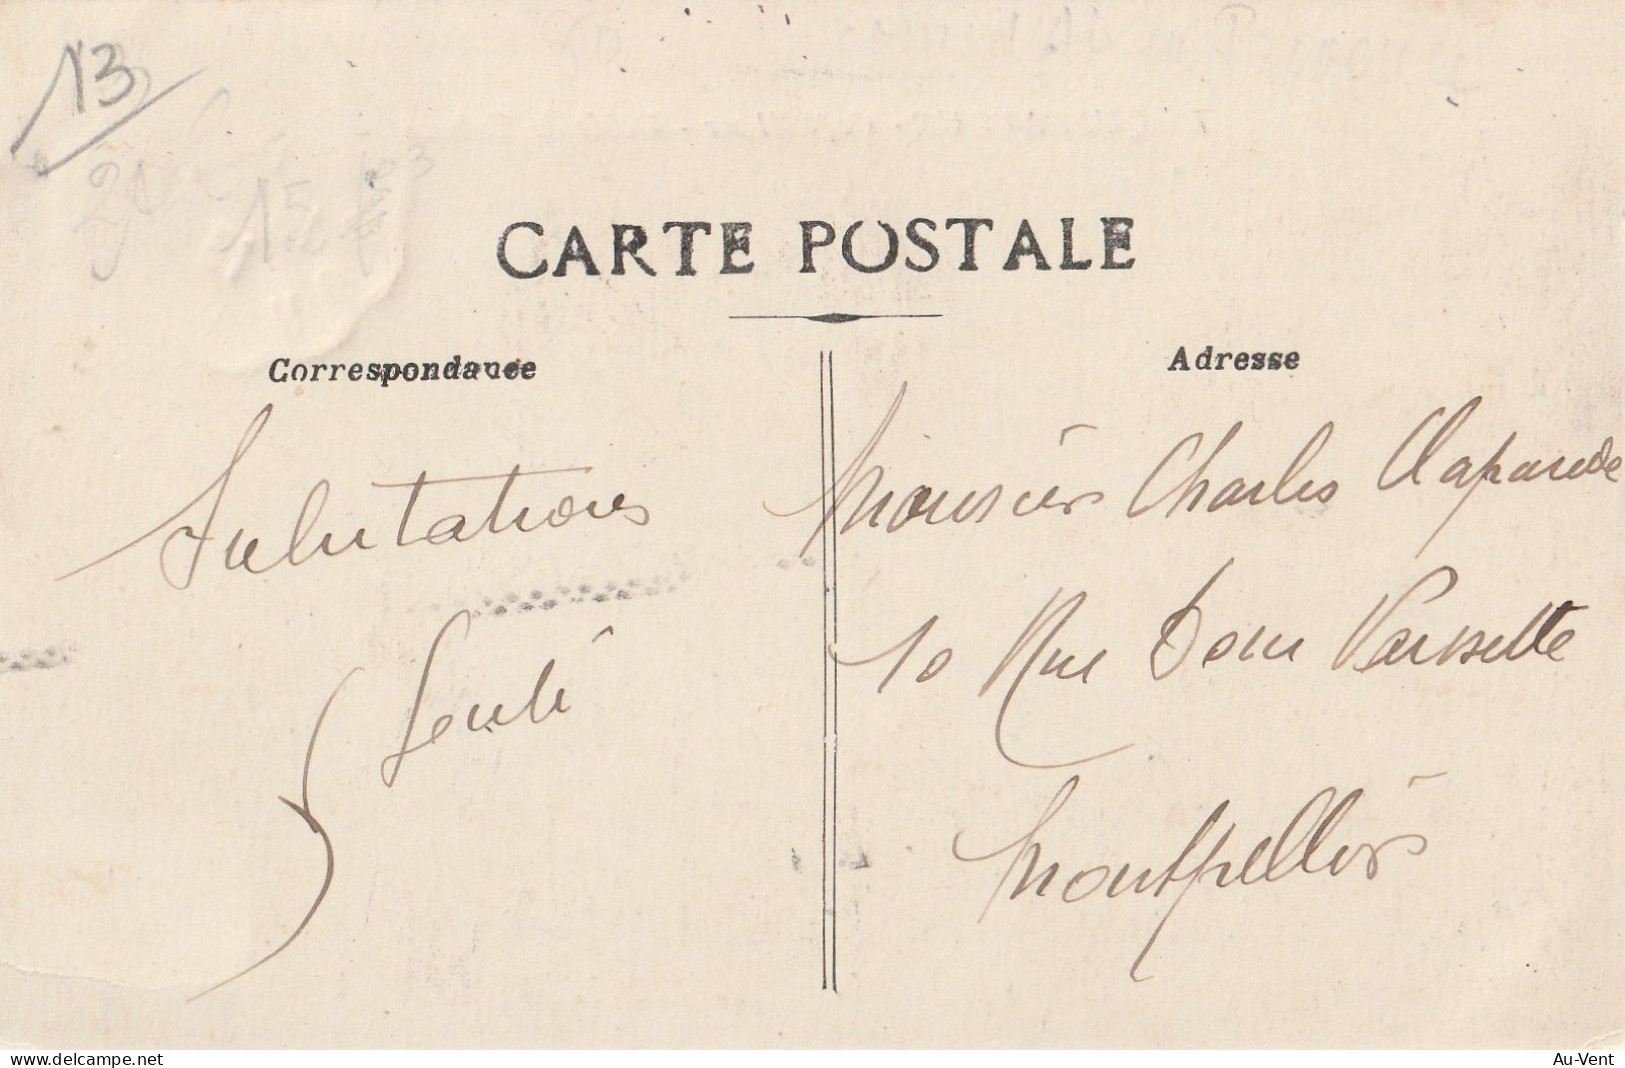 13
15
CARTE POSTALE
Correspondance
Adresse
Salutations
Monsieur Charles Claparede
10 Rue Dom Vaissette
Montpellier
www.delcampe.net
Au-Vent